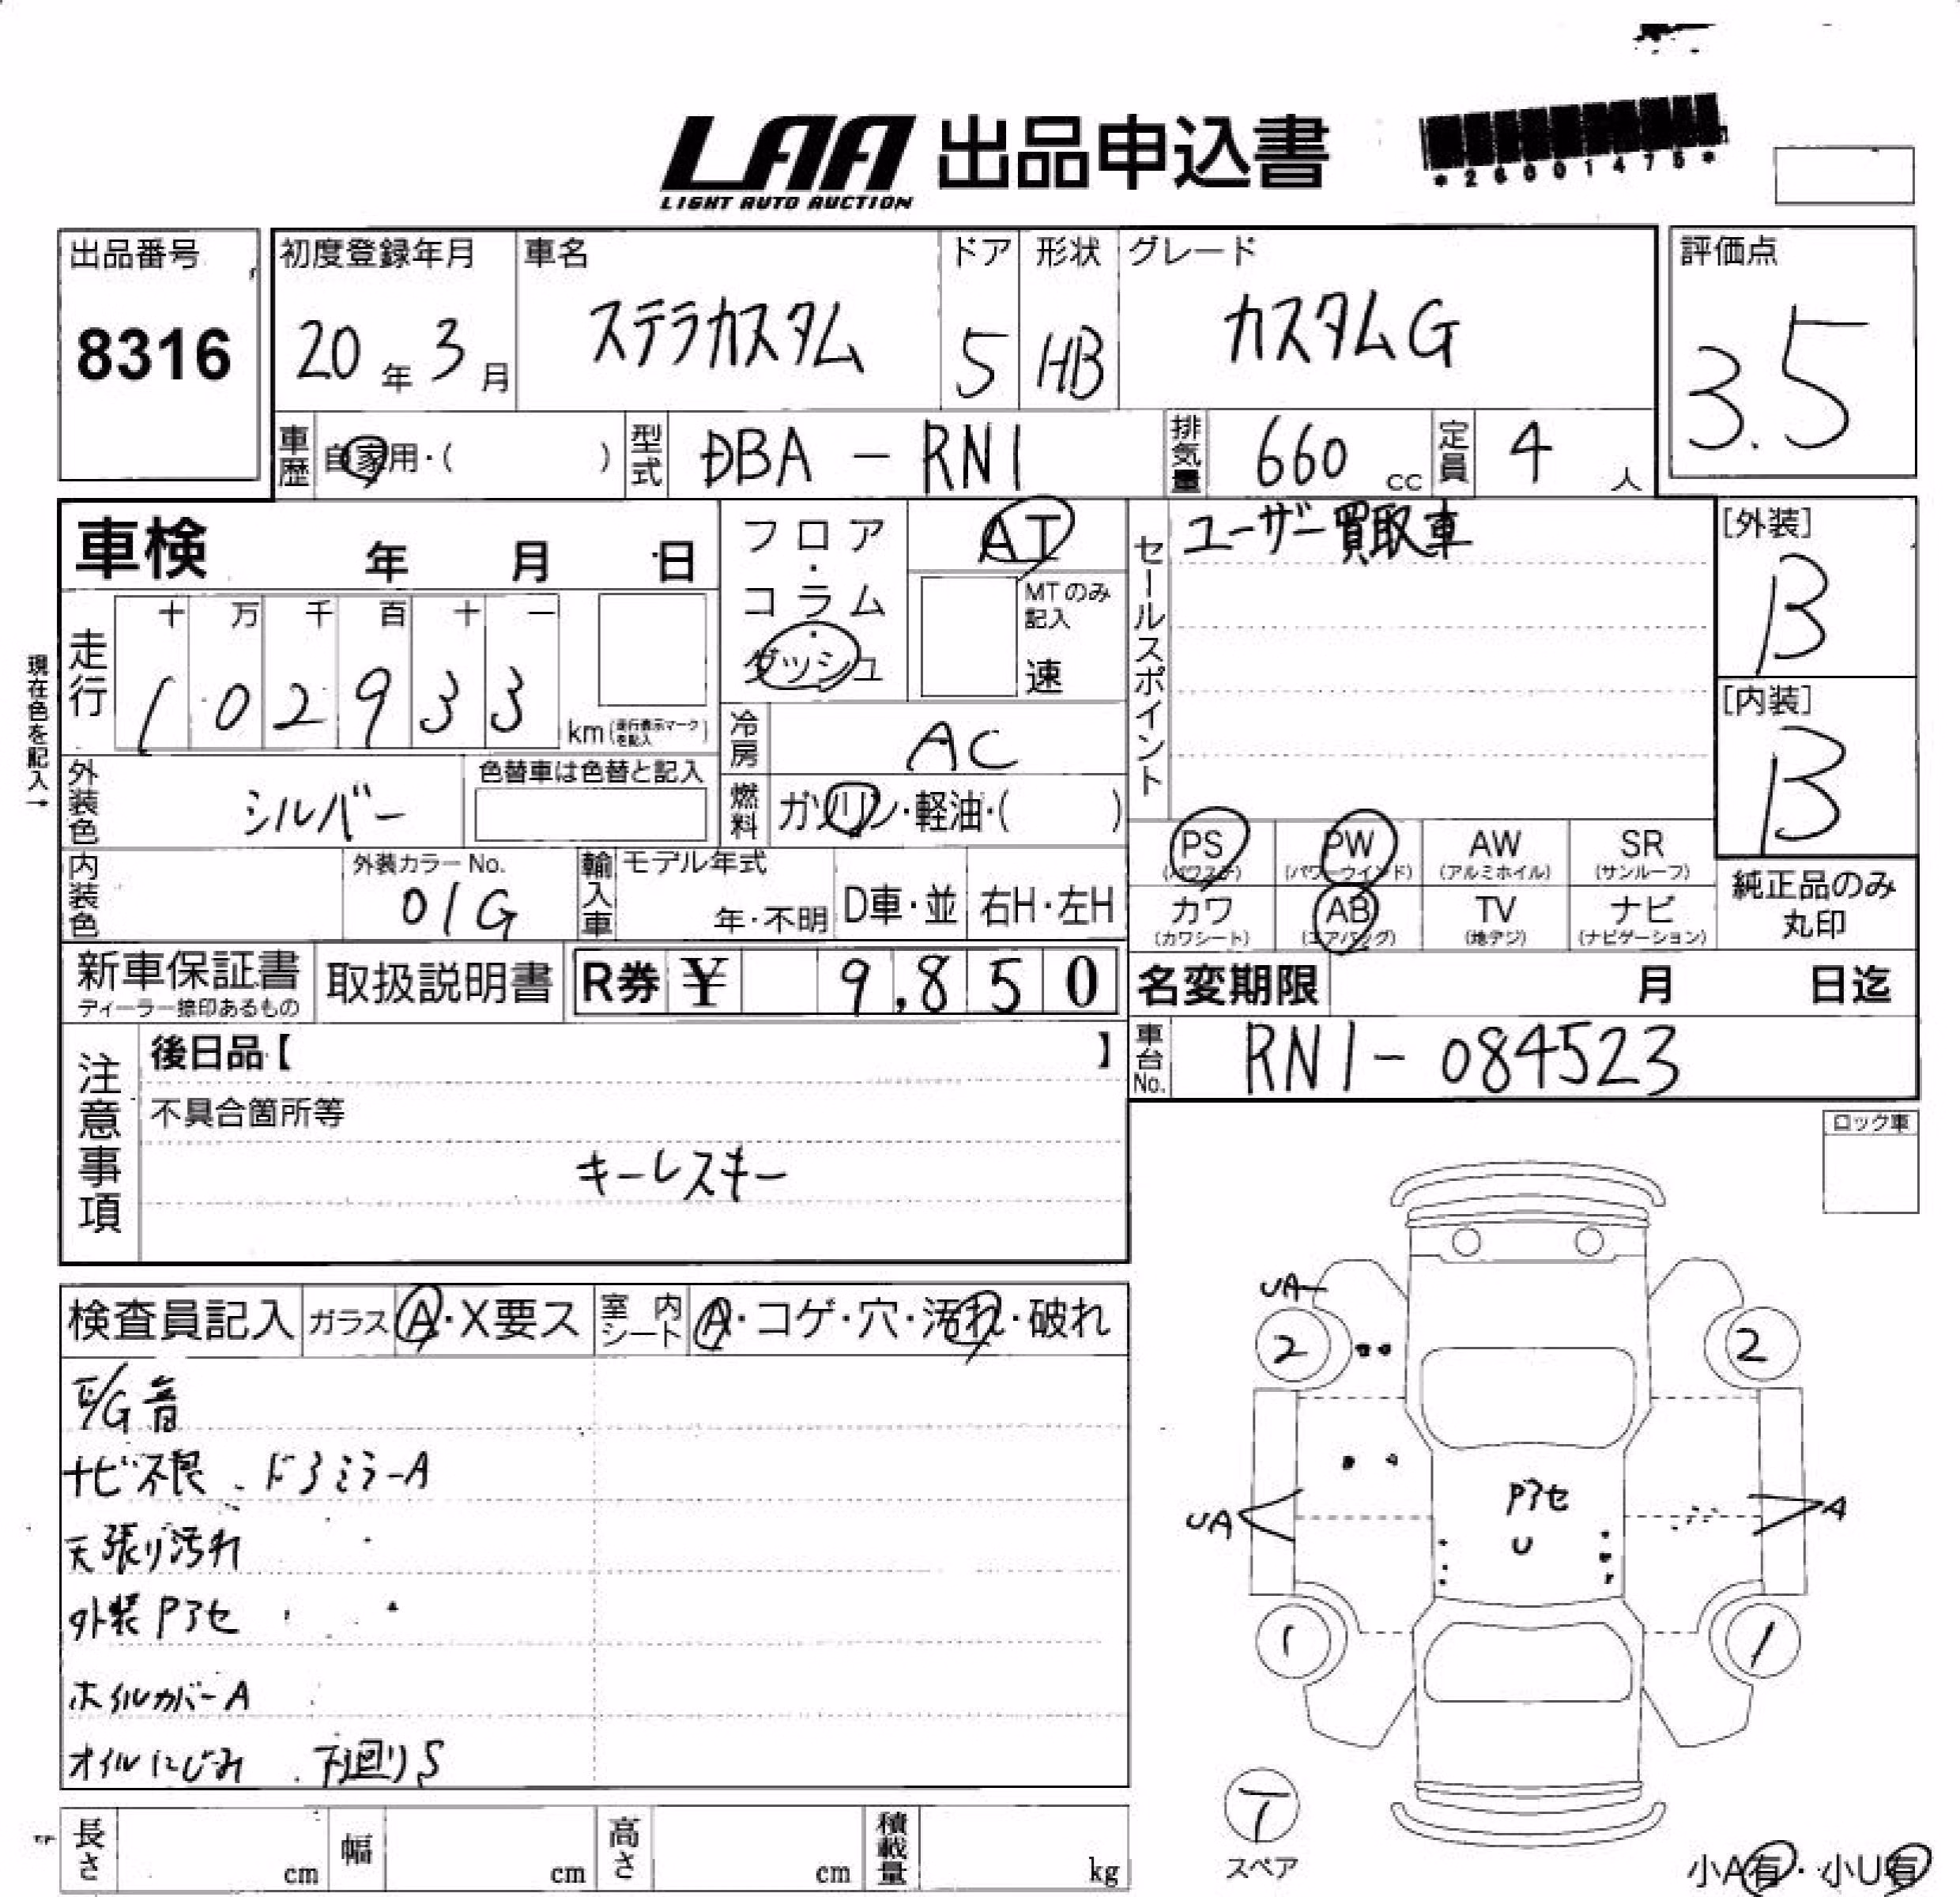 LAA 出品申込書
LIGHT AUTO AUCTION
*26001475*
出品番号
8316
初度登録年月
20年3月
車名
ステラカスタム
ドア
5
形状
HB
グレード
カスタムG
評価点
3.5
車歴
自家用・( )
型式
DBA - RN1
排気量
660 cc
定員
4 人
車検 年 月 日
フロア・コラム・ダッシュ
AT
MTのみ記入
速
セールスポイント
ユーザー買取車
[外装]
B
[内装]
B
現在色を記入→
走行
十 万 千 百 十 一
1 0 2 9 3 3
km(走行表示マークを記入)
冷房
AC
燃料
ガソリン・軽油・( )
外装色
シルバー
色替車は色替と記入
PS (パワステ)
PW (パワーウインド)
AW (アルミホイル)
SR (サンルーフ)
カワ (カワシート)
AB (エアバッグ)
TV (地デジ)
ナビ (ナビゲーション)
純正品のみ丸印
内装色
外装カラーNo.
01G
輸入車
モデル年式
年・不明
D車・並
右H・左H
新車保証書
ディーラー捺印あるもの
取扱説明書
R券 ¥ 9,850
名変期限 月 日迄
車台No.
RN1-084523
注意事項
後日品【 】
不具合箇所等
キーレスキー
ロック車
検査員記入
ガラス
A・X要ス
室内シート
A・コゲ・穴・汚れ・破れ
E/G音
ナビ不良 . ドアミラーA
天張り汚れ
外装Pアセ
ホイルカバーA
オイルにじみ . 下廻りS
UA
2
2
Pアセ
U
UA
A
1
1
T
スペア
小A有・小U有
長さ cm
幅 cm
高さ cm
積載量 kg